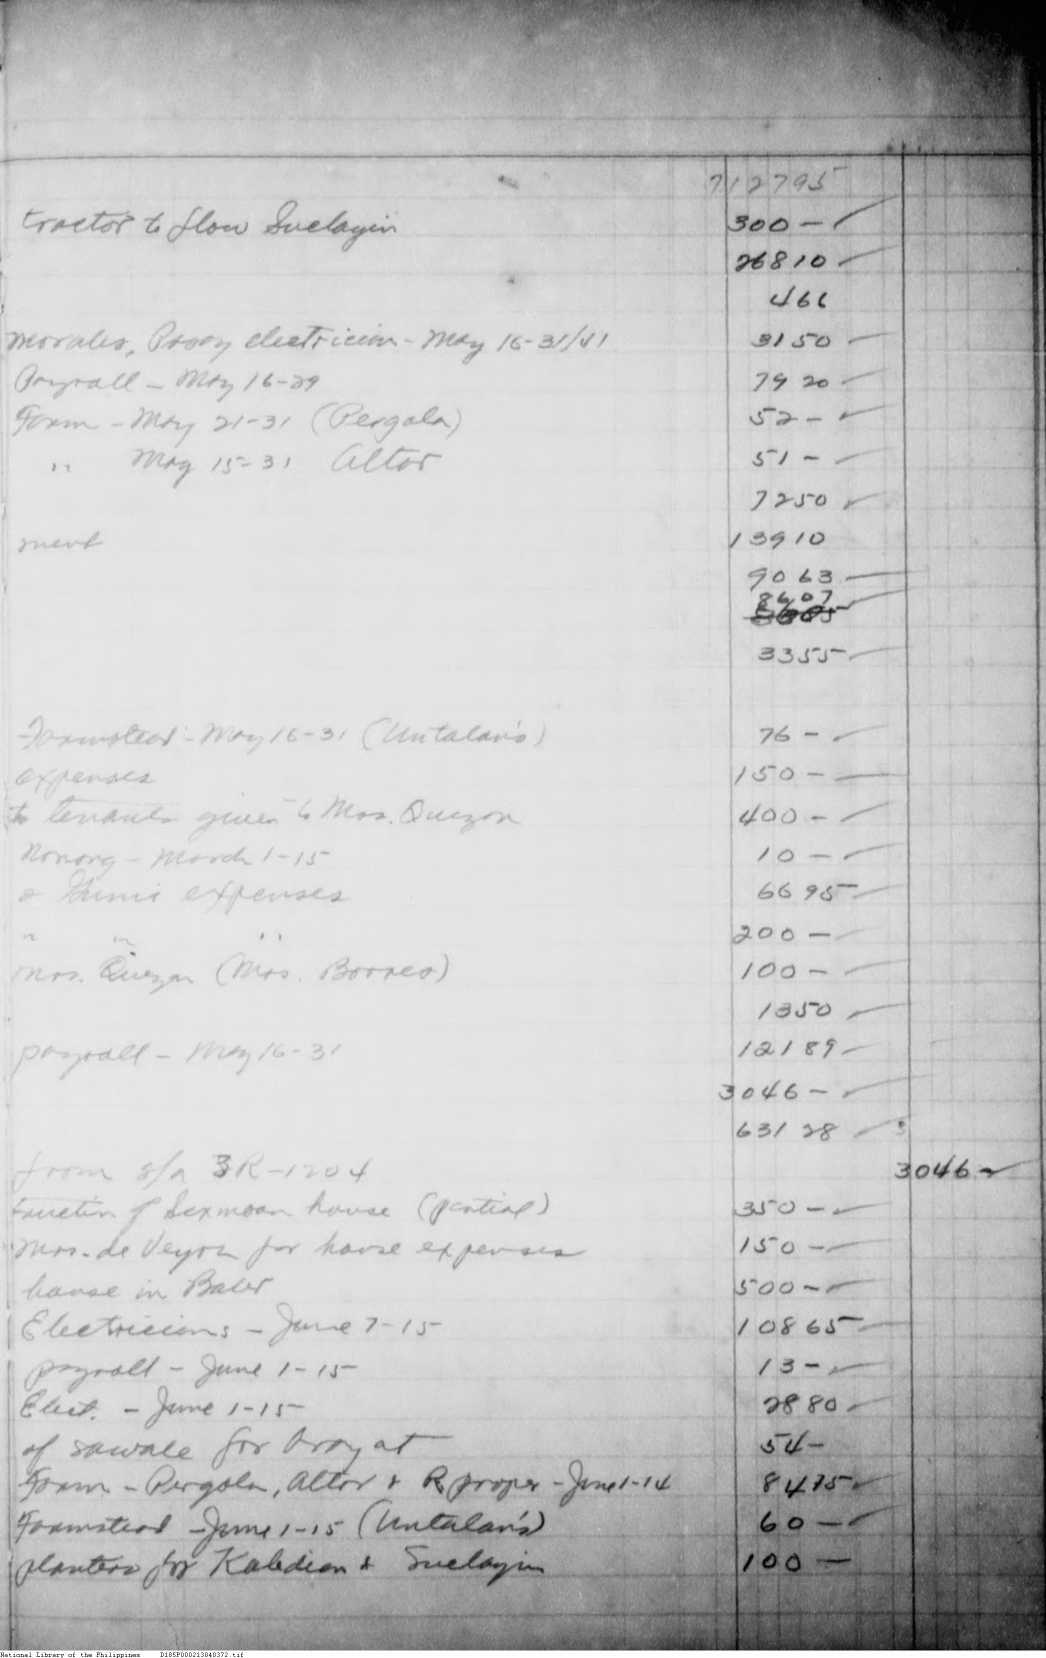 712795
tractor to plow Suclayin 300 –
26810
466
Morales, Pasay electrician - May 16-31/41 3150
Payroll - May 16-29 7920
Farm - May 21-31 (Pergola) 52 –
" May 15-31 Altar 51 –
7250
ment 13910
9063
8607
3355
Farmstead - May 16-31 (Untalan's) 76 –
expenses 150 –
to tenants given to Mrs. Quezon 400 –
Nonong - March 1-15 10 –
expenses 6695
" " " 200 –
Mrs. Quezon (Mrs. Borreo) 100 –
1350
payroll - May 16-31 12189
3046 –
63128
from s/a BR-1204 3046 –
of Sexmoan house (partial) 350 –
Mrs. de Veyra for house expenses 150 –
house in Baler 500 –
Electricians - June 7-15 10865
payroll - June 1-15 13 –
Elect. - June 1-15 2880
of sawale for Arayat 54 –
Farm - Pergola, Altar & R proper - June 1-14 8475
Farmstead - June 1-15 (Untalan's) 60 –
planters for Kaledian & Suclayin 100 –
National Library of the Philippines D185P000213040372.tif